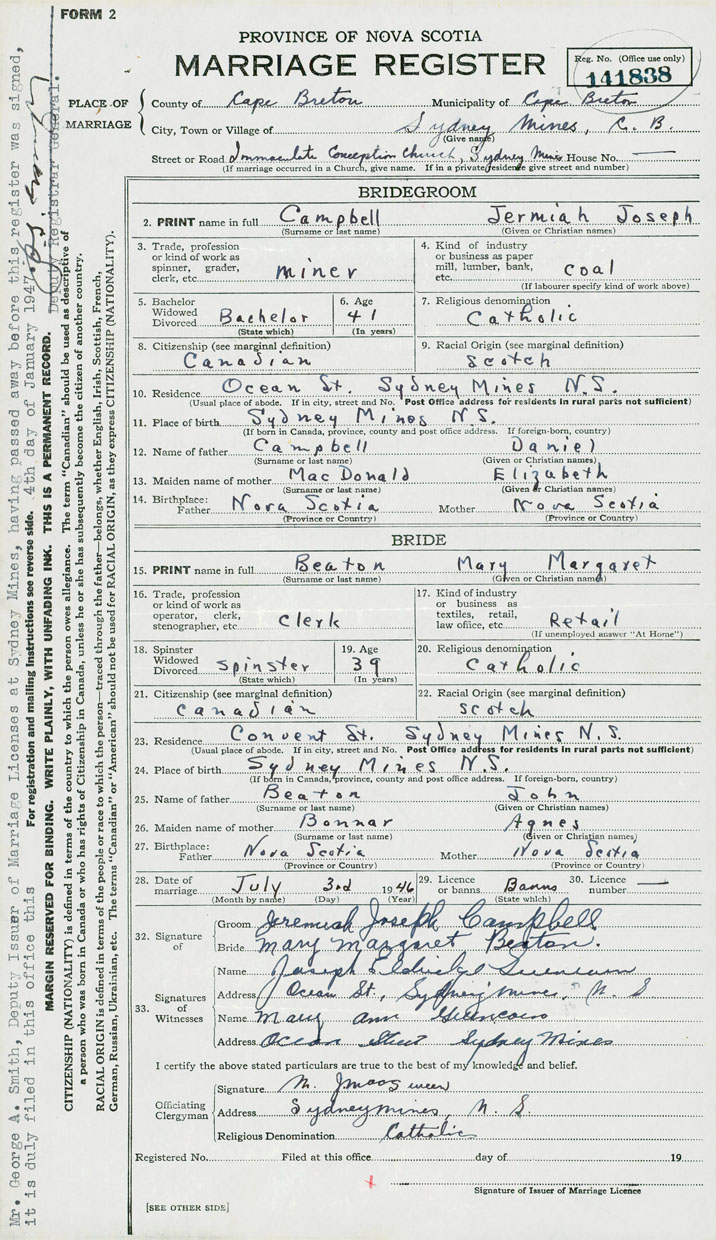 FORM 2
PROVINCE OF NOVA SCOTIA
MARRIAGE REGISTER
Reg. No. (Office use only)
141838
PLACE OF MARRIAGE
County of Cape Breton Municipality of Cape Breton
City, Town or Village of Sydney Mines, C. B.
(Give name)
Street or Road Immaculate Conception Church, Sydney Mines House No. —
(If marriage occurred in a Church, give name. If in a private residence give street and number)
BRIDEGROOM
2. PRINT name in full Campbell Jermiah Joseph
(Surname or last name) (Given or Christian names)
3. Trade, profession or kind of work as spinner, grader, clerk, etc. miner
4. Kind of industry or business as paper mill, lumber, bank, etc. coal
(If labourer specify kind of work above)
5. Bachelor Widowed Divorced Bachelor (State which)
6. Age 41 (In years)
7. Religious denomination Catholic
8. Citizenship (see marginal definition) Canadian
9. Racial Origin (see marginal definition) Scotch
10. Residence Ocean St. Sydney Mines N.S.
(Usual place of abode. If in city, street and No. Post Office address for residents in rural parts not sufficient)
11. Place of birth Sydney Mines N.S.
(If born in Canada, province, county and post office address. If foreign-born, country)
12. Name of father Campbell Daniel
(Surname or last name) (Given or Christian names)
13. Maiden name of mother MacDonald Elizabeth
(Surname or last name) (Given or Christian names)
14. Birthplace: Father Nova Scotia Mother Nova Scotia
(Province or Country) (Province or Country)
BRIDE
15. PRINT name in full Beaton Mary Margaret
(Surname or last name) (Given or Christian names)
16. Trade, profession or kind of work as operator, clerk, stenographer, etc. Clerk
17. Kind of industry or business as textiles, retail, law office, etc. Retail
(If unemployed answer "At Home")
18. Spinster Widowed Divorced Spinster (State which)
19. Age 39 (In years)
20. Religious denomination Catholic
21. Citizenship (see marginal definition) Canadian
22. Racial Origin (see marginal definition) Scotch
23. Residence Convent St. Sydney Mines N.S.
(Usual place of abode. If in city, street and No. Post Office address for residents in rural parts not sufficient)
24. Place of birth Sydney Mines N.S.
(If born in Canada, province, county and post office address. If foreign-born, country)
25. Name of father Beaton John
(Surname or last name) (Given or Christian names)
26. Maiden name of mother Bonnar Agnes
(Surname or last name) (Given or Christian names)
27. Birthplace: Father Nova Scotia Mother Nova Scotia
(Province or Country) (Province or Country)
28. Date of marriage July 3rd 1946
(Month by name) (Day) (Year)
29. Licence or banns Banns (State which)
30. Licence number —
32. Signature of
Groom Jeremiah Joseph Campbell
Bride Mary Margaret Beaton.
33. Signatures of Witnesses
Name Joseph
Address Ocean St., Sydney Mines, N. S
Name Mary Ann
Address Ocean Street Sydney Mines
I certify the above stated particulars are true to the best of my knowledge and belief.
Officiating Clergyman
Signature M.
Address Sydney Mines, N. S.
Religious Denomination Catholic
Registered No. Filed at this office day of 19
Signature of Issuer of Marriage Licence
[SEE OTHER SIDE]
Mr. George A. Smith, Deputy Issuer of Marriage Licenses at Sydney Mines, having passed away before this register was signed,
it is duly filed in this office this 4th day of January 1947.
Deputy Registrar General.
For registration and mailing instructions see reverse side.
MARGIN RESERVED FOR BINDING. WRITE PLAINLY, WITH UNFADING INK. THIS IS A PERMANENT RECORD.
CITIZENSHIP (NATIONALITY) is defined in terms of the country to which the person owes allegiance. The term "Canadian" should be used as descriptive of
a person who was born in Canada or who has rights of Citizenship in Canada, unless he or she has subsequently become the citizen of another country.
RACIAL ORIGIN is defined in terms of the people or race to which the person—traced through the father—belongs, whether English, Irish, Scottish, French,
German, Russian, Ukrainian, etc. The terms "Canadian" or "American" should not be used for RACIAL ORIGIN, as they express CITIZENSHIP (NATIONALITY).